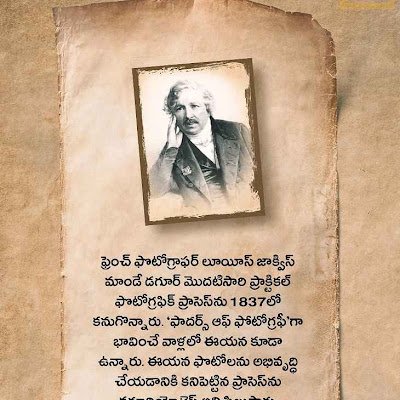 ఫ్రెంచ్ ఫొటోగ్రాఫర్ లూయీస్ జాక్విస్
మాండే డగూర్ మొదటిసారి ప్రాక్టికల్
ఫొటోగ్రఫిక్ ప్రాసెస్‌ను 1837లో
కనుగొన్నారు. ‘ఫాదర్స్ ఆఫ్ ఫోటోగ్రఫీ’గా
భావించే వాళ్లలో ఈయన కూడా
ఉన్నారు. ఈయన ఫొటోలను అభివృద్ధి
చేయడానికి కనిపెట్టిన ప్రాసెస్‌ను